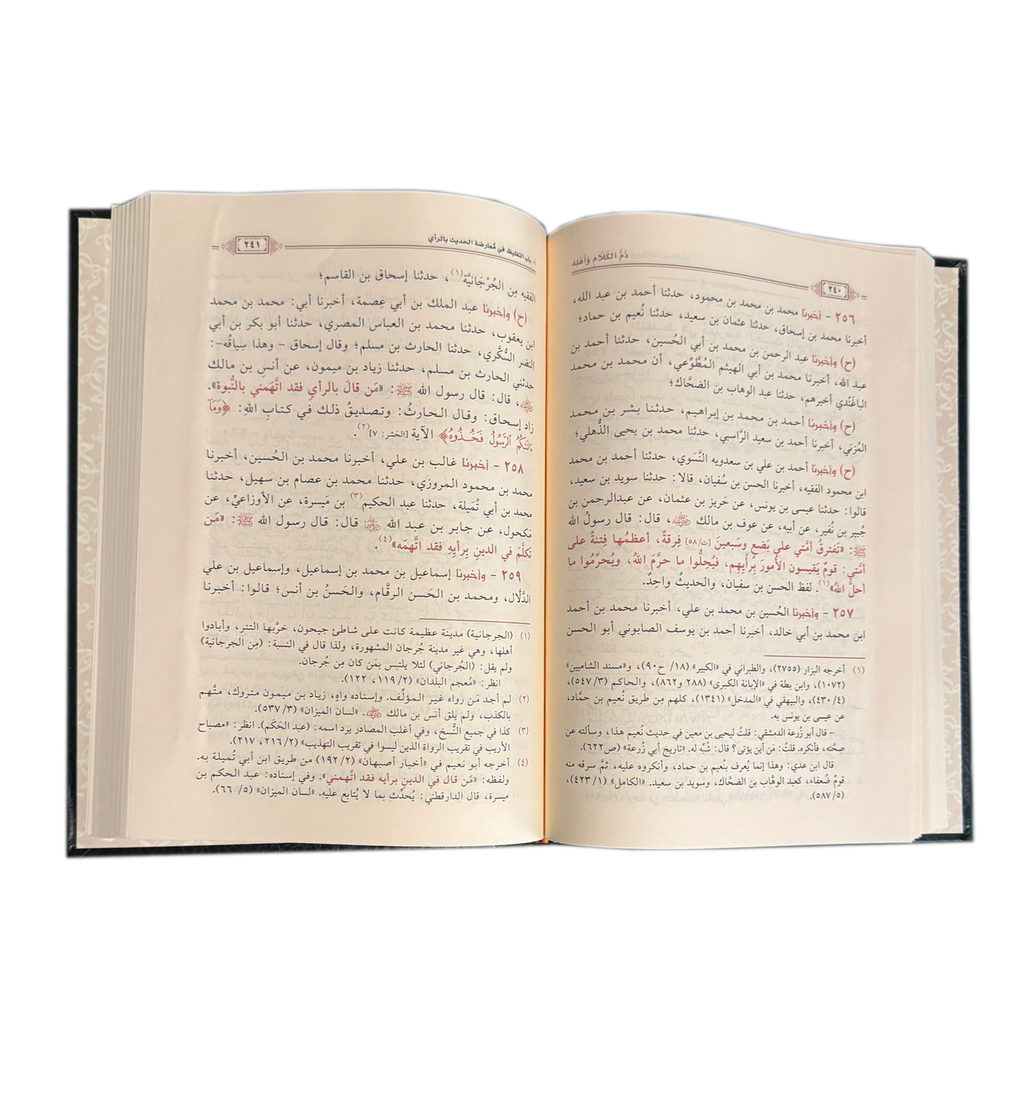 ذَمُّ الكَلَام وَأهْلِه
٢٤٠
٢٥٦ - أخبرنا محمد بن محمد بن محمود، حدثنا أحمد بن عبد الله،
أخبرنا محمد بن إسحاق، حدثنا عثمان بن سعيد، حدثنا نُعيم بن حماد؛
(ح) وأخبرنا عبد الرحمن بن محمد بن أبي الحُسين، حدثنا أحمد بن
عبد الله، أخبرنا محمد بن أبي الهيثم المُطَّوِّعي، أن محمد بن محمد
الباغَنْدي أخبرهم، حدثنا عبد الوهاب بن الضحَّاك؛
(ح) وأخبرنا أحمد بن محمد بن إبراهيم، حدثنا بشر بن محمد
المُزني، أخبرنا أحمد بن سعيد الرَّاسبي، حدثنا محمد بن يحيى الذُّهلي؛
(ح) وأخبرنا أحمد بن علي بن سعدويه النَّسَوي، حدثنا محمد بن أحمد
ابن محمود الفقيه، أخبرنا الحسن بن سُفيان، قالا: حدثنا سويد بن سعيد،
قالوا: حدثنا عيسى بن يونس، عن حَريز بن عثمان، عن عبدالرحمن بن
جُبير بن نُفير، عن أبيه، عن عوف بن مالك ﵁، قال: قال رسولُ الله
ﷺ: «تَفترقُ أمَّتي على بَضعٍ وسَبعينَ [ت/٥٨] فِرقةً، أعظمُها فِتنةً على
أمَّتي: قومٌ يَقيسون الأمورَ برأيِهم، فيُحِلُّوا ما حرَّمَ اللهُ، ويُحرِّمُوا ما
أحلَّ اللهُ»(١). لفظ الحسن بن سفيان، والحديثُ واحِدٌ.
٢٥٧ - وأخبرنا الحُسين بن محمد بن علي، أخبرنا محمد بن أحمد
ابن محمد بن أبي خالد، أخبرنا أحمد بن يوسف الصابوني أبو الحسن
(١) أخرجه البزار (٢٧٥٥)، والطبراني في «الكبير» (١٨/ ح٩٠)، و«مسند الشاميين»
(١٠٧٢)، وابن بطة في «الإبانة الكبرى» (٢٨٨ و٨٦٢)، والحاكم (٣/ ٥٤٧)
(٤/ ٤٣٠)، والبيهقي في «المدخل» (١٣٤١)، كلهم مِن طريق نُعيم بن حمَّاد،
عن عيسى بن يونس به.
- قال أبو زُرعة الدمشقي: قلتُ ليحيى بن معين في حديث نُعيم هذا، وسألته عن
صِحَّته، فأنكره. قلتُ: مَن أين يؤتى؟ قال: شُبِّه له. «تاريخ أبي زُرعة» (ص٦٢٢).
قال ابن عدي: وهذا إنما يُعرف بنُعيم بن حماد، وأنكروه عليه، ثمَّ سرقه منه
قومٌ ضُعفاء، كعبد الوهّاب بن الضحَّاك، وسويد بن سعيد. «الكامل» (١/ ٤٢٣)،
(٥/ ٥٨٧).
١. باب التغليظ في مُعارضة الحديث بالرأي
٢٤١
الفقيه مِن الجُرْجَانيَّة(١)، حدثنا إسحاق بن القاسم؛
(ح) وأخبرنا عبد الملك بن أبي عِصمة، أخبرنا أبي: محمد بن محمد
ابن يعقوب، حدثنا محمد بن العباس المصري، حدثنا أبو بكر بن أبي
النضر السُّكَّري، حدثنا الحارث بن مسلم؛ وقال إسحاق - وهذا سِياقُه-:
حدثني الحارث بن مسلم، حدثنا زياد بن ميمون، عن أنس بن مالك
﵁، قال: قال رسول الله ﷺ: «مَن قالَ بالرأيِ فقد اتَّهمَني بالنُّبوة».
زاد إسحاق: وقال الحارثُ: وتصديقُ ذلك في كتابِ اللهِ: ﴿وَمَآ
ءَاتَىٰكُمُ ٱلرَّسُولُ فَخُذُوهُ﴾ الآية [الحَشر: ٧](٢).
٢٥٨ - أخبرنا غالب بن علي، أخبرنا محمد بن الحُسين، أخبرنا
محمد بن محمود المروزي، حدثنا محمد بن عصام بن سهيل، حدثنا
محمد بن أبي تُمَيلة، حدثنا عبد الحكيم(٣) بن مَيسرة، عن الأوزاعيِّ، عن
مكحول، عن جابر بن عبد الله ﵄ قال: قال رسول الله ﷺ: «مَن
تكلَّمَ في الدينِ بِرأيِهِ فقد اتَّهمَه»(٤).
٢٥٩ - وأخبرنا إسماعيل بن محمد بن إسماعيل، وإسماعيل بن علي
الدَّلَّال، ومحمد بن الحَسن الرقَّام، والحَسنُ بن أنس؛ قالوا: أخبرنا
(١) (الجرجانية) مدينة عظيمة كانت على شاطئ جيحون، خرَّبها التتر، وأبادوا
أهلها، وهي غير مدينة جُرجان المشهورة، ولذا قال في النسبة: (مِن الجرجانية)
ولم يقل: (الجُرجاني) لئلا يلتبس بمَن كان مِن جُرجان.
انظر: «مُعجم البلدان» (٢/ ١١٩، ١٢٢).
(٢) لم أجد مَن رواه غير المؤلِّف. وإسناده واهٍ، زياد بن ميمون متروك، متَّهم
بالكذب، ولم يَلق أنَس بن مالك ﵁. «لسان الميزان» (٣/ ٥٣٧).
(٣) كذا في جميع النُّسخ، وفي أغلب المصادر يرد اسمه: (عبد الحَكم). انظر: «مصباح
الأريب في تقريب الرواة الذين ليسوا في تقريب التهذيب» (٢/ ٢١٦، ٢١٧).
(٤) أخرجه أبو نعيم في «أخبار أصبهان» (٢/ ١٩٢) من طريق ابن أبي تُميلة به.
ولفظه: «مَن قال في الدينِ برأيه فقد اتَّهمني». وفي إسناده: عبد الحكم بن
ميسرة، قال الدارقطني: يُحدِّث بما لا يُتابع عليه. «لسان الميزان» (٥/ ٦٦).